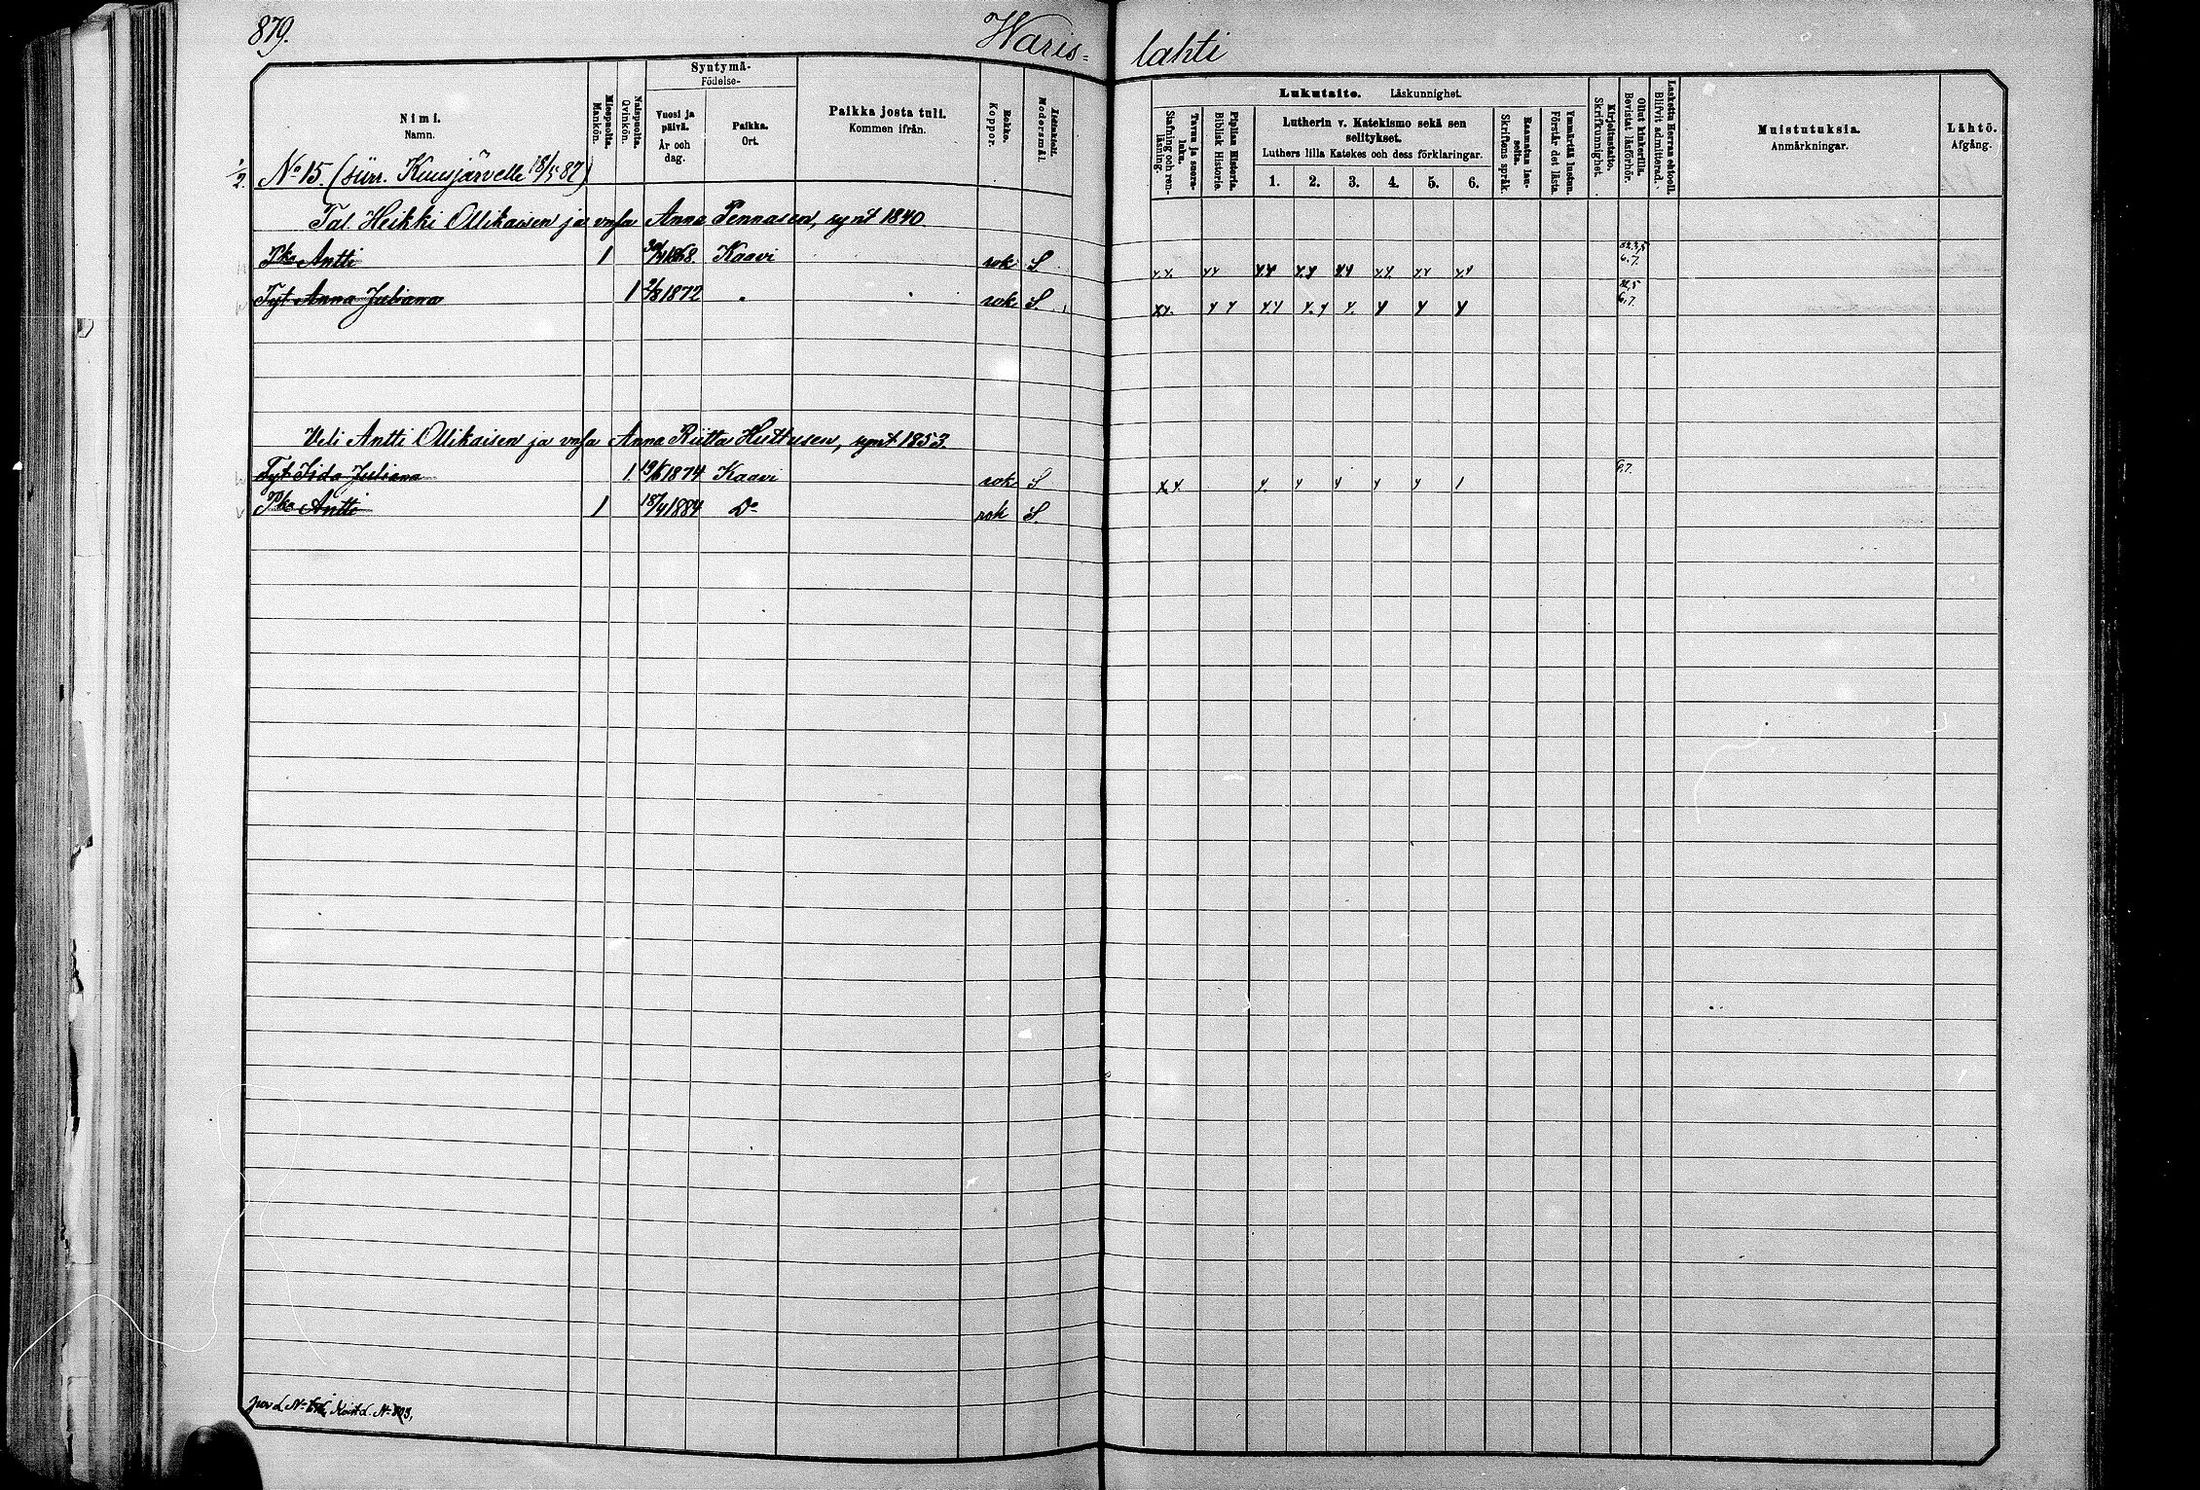 879.
Waris=
lahti
Nimi.
Namn.
Miespuolta.
Mankön.
Naispuolta.
Qvinkön.
Syntymä-
Födelse-
Vuosi ja
päivä.
År och
dag.
Paikka.
Ort.
Paikka josta tuli.
Kommen ifrån.
Rokko.
Koppor.
Äidinkieli.
Modersmål.
Lukutaito. Läskunnighet.
Tavuu ja suora-
luku.
Stafning och ren-
läsning.
Piplian Historia.
Biblisk Historie.
Lutherin v. Katekismo sekä sen
selitykset.
Luthers lilla Katekes och dess förklaringar.
1. 2. 3. 4. 5. 6.
Raamatun lau-
seita.
Skriftens språk.
Ymmärtää luetun.
Förstår det lästa.
Kirjoitustaito.
Skrifkunnighet.
Ollut kinkerillä.
Bevistat läsförhör.
Laskettu Herran ehtooll.
Blifvit admitterad.
Muistutuksia.
Anmärkningar.
Lähtö.
Afgång.
1/2. No 15. (siirr. Kuusjärvelle 18/5 87)
Tal. Heikki Ollikaisen ja vmsa Anna Pennasen, synt 1840.
Pka Antti 1 30/4 1868 Kaavi rok S.
Tyt Anna Juliana 1 2/8 1872 " rok S.
Veli Antti Ollikaisen ja vmsa Anna Riitta Huttusen, synt 1853.
Tyt Iida Juliana 1. 19/6 1874 Kaavi rok S 6.7.
Pka Antti 1 18/4 1884 Do rok S.